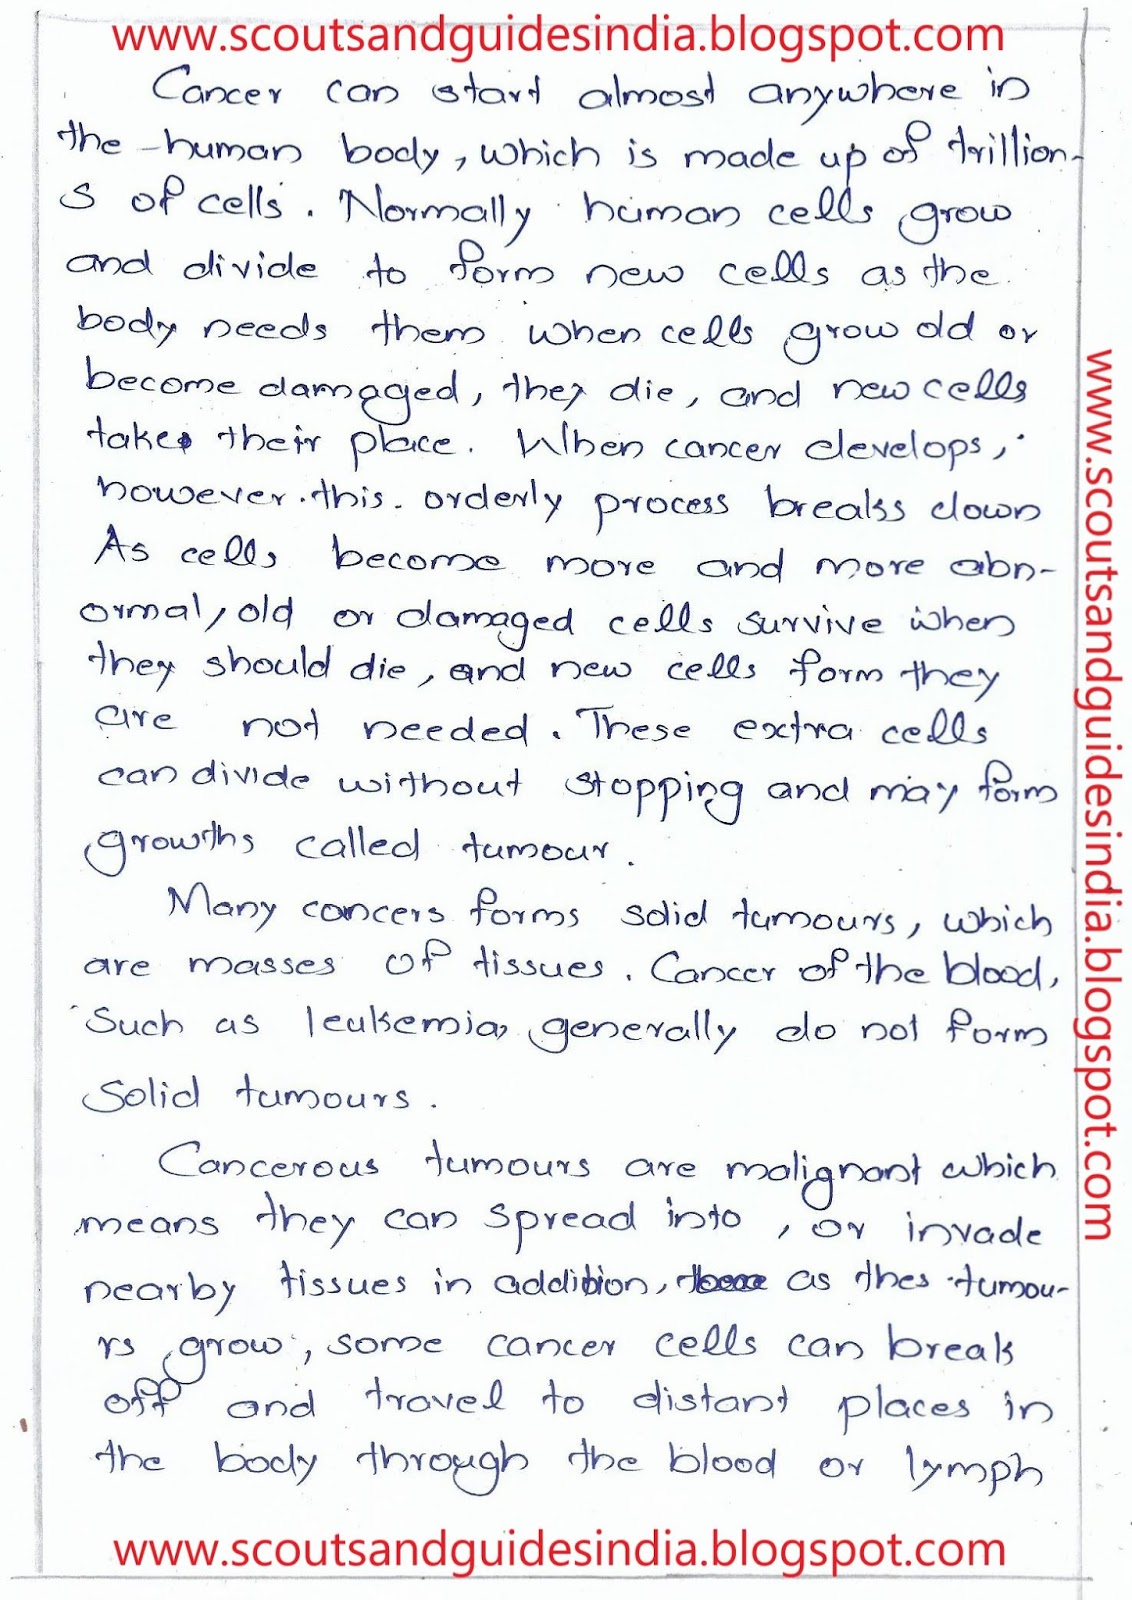 www.scoutsandguidesindia.blogspot.com
Cancer can start almost anywhere in
the human body, which is made up of trillion-
s of cells. Normally human cells grow
and divide to form new cells as the
body needs them when cells grow old or
become damaged, they die, and new cells
take their place. When cancer develops,
however. this. orderly process breaks down
As cells become more and more abn-
ormal, old or damaged cells survive when
they should die, and new cells form they
are not needed. These extra cells
can divide without stopping and may form
growths called tumour.
Many cancers forms solid tumours, which
are masses of tissues. Cancer of the blood,
Such as leukemia, generally do not form
Solid tumours.
Cancerous tumours are malignant which
means they can spread into, or invade
nearby tissues in addition, as thes tumou-
rs grow, some cancer cells can break
off and travel to distant places in
the body through the blood or lymph
www.scoutsandguidesindia.blogspot.com
www.scoutsandguidesindia.blogspot.com